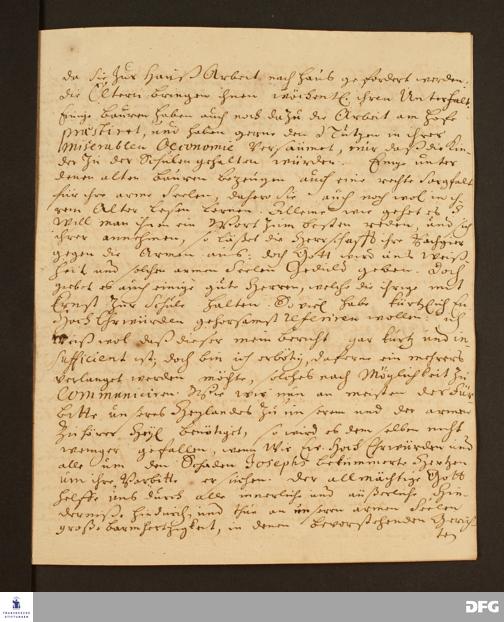 da sie zur Hauß Arbeit nach Haus gefordert werden.
die Eltern bringen ihnen wöchentl. ihren Unterhalt.
Einige bauren haben auch noch dazu die Arbeit am Hofe
praestiret, und haben gerne den Nutzen in ihrer
miserablen Oeconomie versäumet, nur daß die Kin-
der zu der Schulen gehalten würden. Einige unter
denen alten bauren bezeugen auch eine rechte Sorgfalt
für ihre arme Seelen, dahero sie auch noch wol in ih-
rem Alter lesen lernen. Alleine wie gehet es?
Will man ihnen ein Wort zum besten reden, und sich
ihrer annehmen, so läßet die Herrschafft ihre
gegen die Armen aus: doch Gott wird uns Weiß-
heit und solchen armen Seelen Geduld geben. Doch
giebet es auch einige gute Herren, welche die ihrige mit
Ernst zur Schule halten. So viel habe kürtzlich Ew.
Hoch Ehrwürden gehorsamst referiren wollen. Ich
weiß wol daß dieser mein bericht gar kurtz und in-
sufficient ist, doch bin ich erbötig, daferne ein mehrers
verlanget werden möchte, solches nach Möglichkeit zu
communiciren. Wie wir nun am meisten der Für-
bitte unseres Heylandes zu unserem und der armen
Zuhörer Heyl benötiget, so wird es demselben nicht
weniger gefallen, wenn wir Ew. Hoch Ehrwürden und
alle um den Schaden Josephs bekümmerte Hertzen
um ihre Vorbitte ersuchen. Der allmächtige Gott
helffe uns durch alle innerliche und äußerliche Hin-
derniße hindurch, und thue an unseren armen Seelen
große barmhertzigkeit, in denen bevorstehenden Gerich-
ten
FRANCKESCHE
STIFTUNGEN
DFG